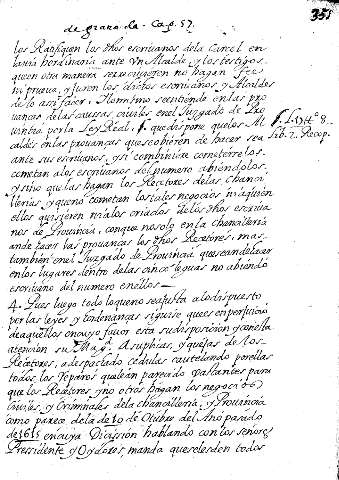 de grana da. Cap. 57.
351
los Ratifiquen los dhos escriuanos de la Carcel en
ante Vn Alcalde, y los testigos
que en otra manera se no hagan fee
ni prueua, y juren los dichos escriuanos y Alcaldes
de lo assi hacer. Y lo mismo se entiende en las pro
uanças de las caussas ciuiles en el Juzgado de Pro
uincia por la Ley Real, que dispone que los Al
caldes en las prouanças que obieren de hacer sea
ante sus escriuanos, y si combiniere cometerlos
cometan a los escriuanos del numero abiendolos
y sino que las hagan los Receptores de las chanci
llerias, y que no cometan los tales negocios ni a quien
ellos quisieren ni a los criados de los dhos escriua
nos de Prouincia, con que no solo en la chancilleria
an de hacer las prouanças los dhos Receptores, mas
tambien en el Juzgado de Prouincia que se an de hacer
en los lugares dentro de las cinco leguas no abiendo
escriuano del numero en ellos
L. 8.
lib. 2. Recop.
4. Pues luego todo lo que no se ajusta a lo dispuesto
por las leyes y ordenanças siguese que es en perjuicio
de aquellos en cuyo fauor esta su disposicion, y con esta
atencion su Magd. A suplicas, y quejas de los
Receptores, a despachado cedulas cautelando por ellas
todos los reparos que le an parecido vastantes para
que los Receptores y no otros hagan los negocios
Ciuiles, y Criminales de la chancilleria, y Prouincia
como parece de la de 10 de Otubre del Año pasado
de 1615 en cuya Decission hablando con los señores
Presidente y Oydores, manda que se les den todos